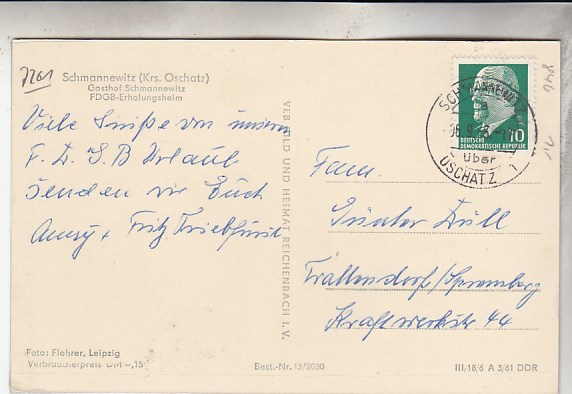 7261
Schmannewitz (Krs. Oschatz)
Gasthof Schmannewitz
FDGB-Erholungsheim
Viele Grüße von unserem
F. D. G. B Urlaub
senden wir Euch
Anny + Fritz
VEB BILD UND HEIMAT REICHENBACH I. V.
DEUTSCHE
DEMOKRATISCHE REPUBLIK
10
SCHMANNEWITZ
über
OSCHATZ
Fam.
Günter Düll
Trattendorf/Spremberg
Kraftwerkstr 44
Foto: Flohrer, Leipzig
Verbraucherpreis DM -,15
Best.-Nr. 13/2030
III/18/6 A 3/61 DDR